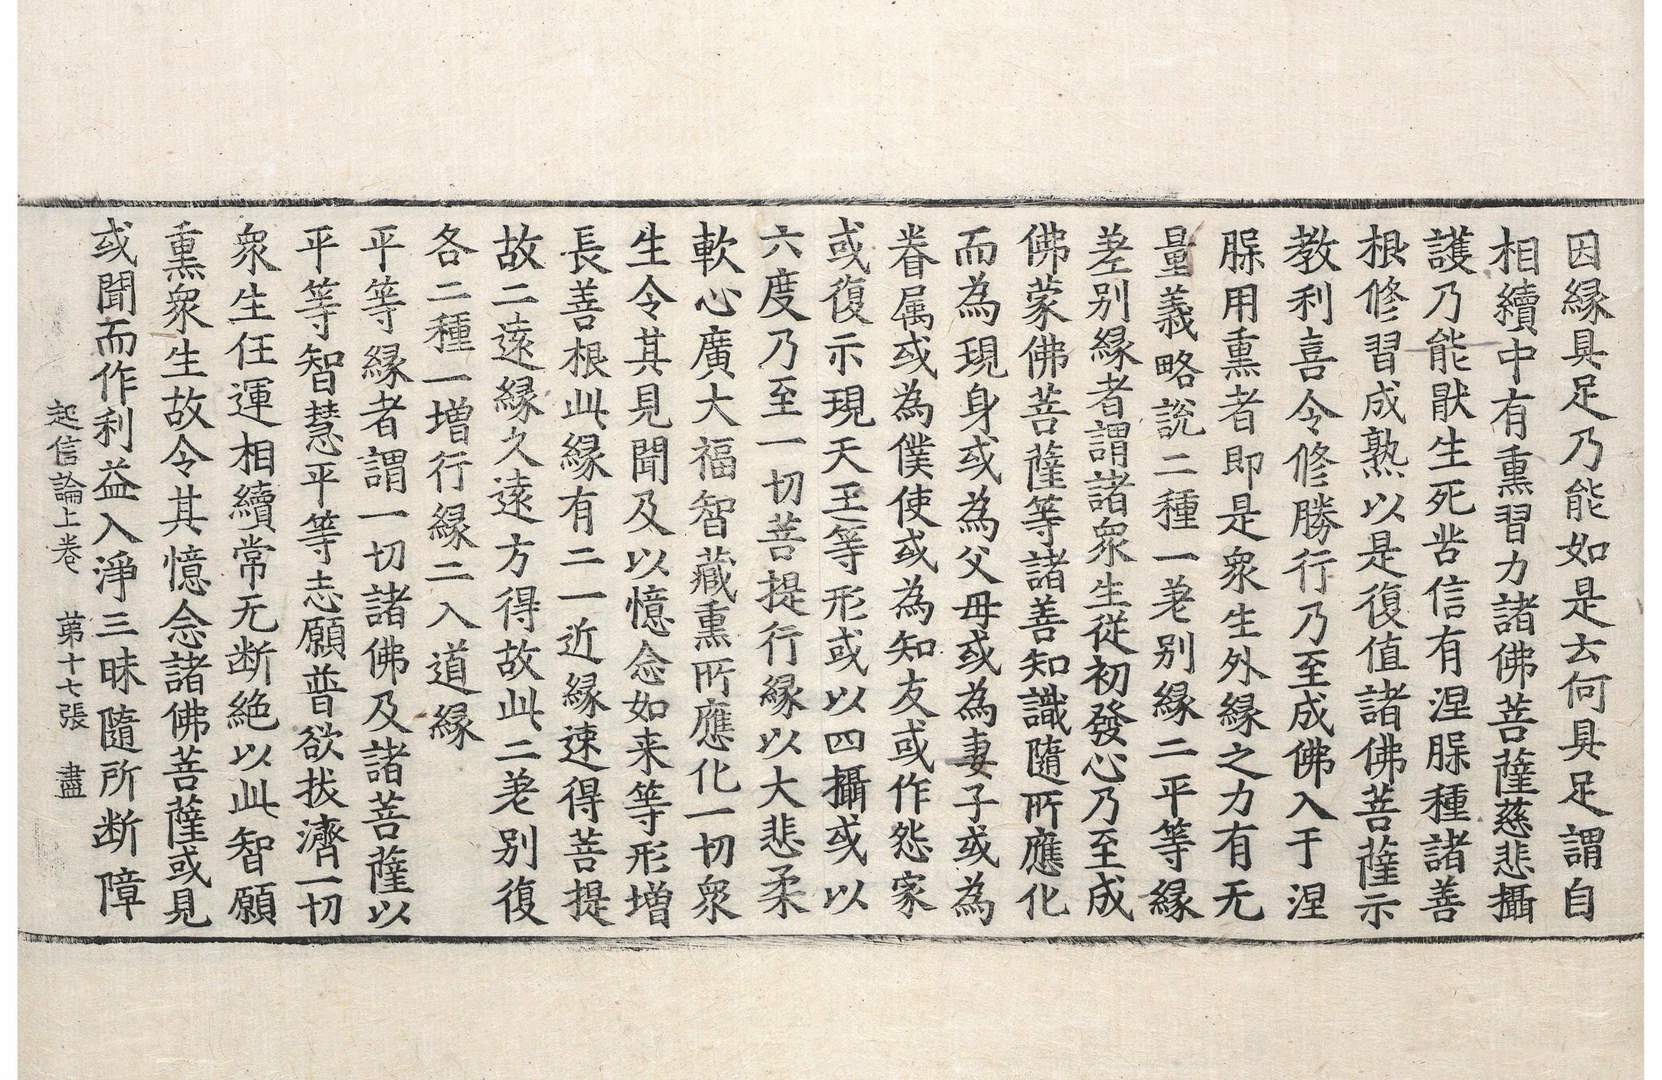 因縁具足乃能如是云何具足謂自
相續中有熏習力諸佛菩薩慈悲攝
護乃能猒生死苦信有涅脲種諸善
根修習成熟以是復值諸佛菩薩示
教利喜令修勝行乃至成佛入于涅
脲用熏者即是衆生外縁之力有无
量義略說二種一差别縁二平等縁
差别縁者謂諸衆生從初發心乃至成
佛蒙佛菩薩等諸善知識隨所應化
而為現身或為父母或為妻子或為
眷属或為僕使或為知友或作怨家
或復示現天王等形或以四攝或以
六度乃至一切菩提行縁以大悲柔
軟心廣大福智藏熏所應化一切衆
生令其見聞及以憶念如来等形增
長善根此縁有二一近縁速得菩提
故二遠縁久遠方得故此二差别復
各二種一增行縁二入道縁
平等縁者謂一切諸佛及諸菩薩以
平等智慧平等志願普欲拔濟一切
衆生任運相續常无断絶以此智願
熏衆生故令其憶念諸佛菩薩或見
或聞而作利益入淨三昧隨所断障
起信論上卷 第十七張 盡